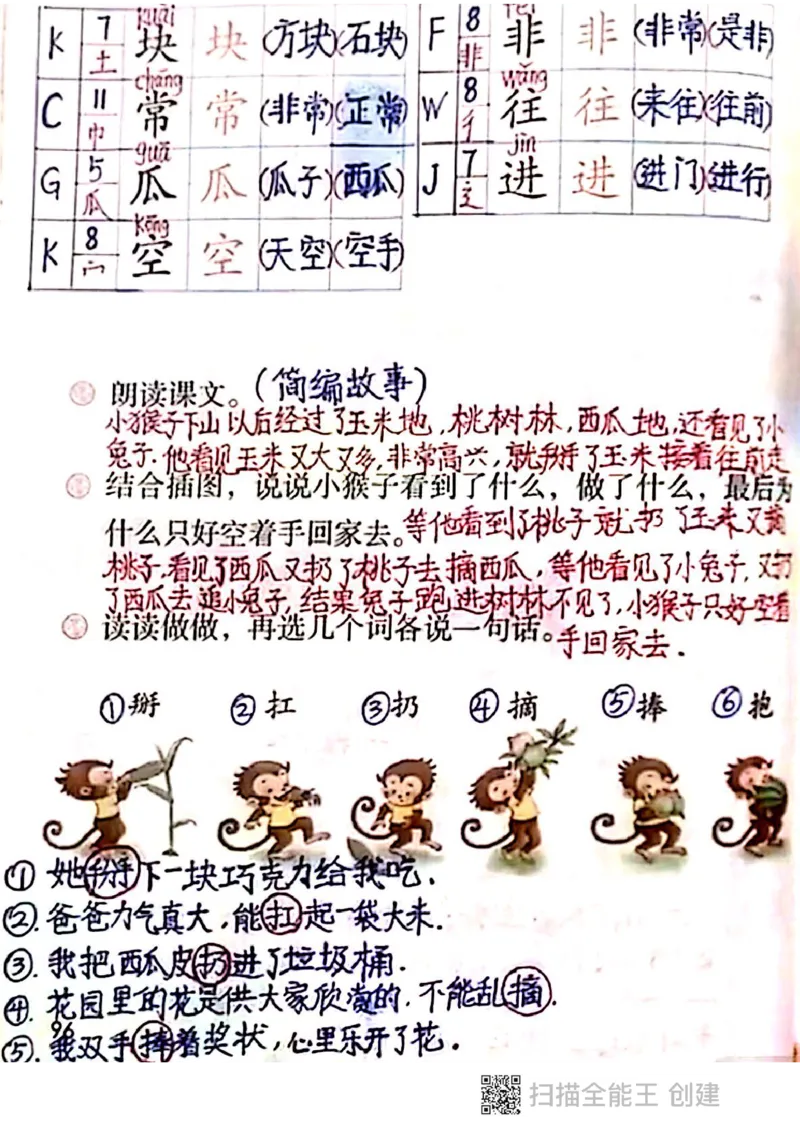 kuài
K 7 土 块 块 (方块)(石块)
cháng
C 11 巾 常 常 (非常)(正常)
guā
G 5 瓜 瓜 瓜 (瓜子)(西瓜)
kōng
K 8 空 空 (天空)(空手)
fēi
F 8 非 非 非 (非常)(是非)
wǎng
W 8 彳 往 往 (来往)(往前)
jìn
J 7 辶 进 进 (进门)(进行)
朗读课文。(简编故事)
小猴子下山以后经过了玉米地,桃树林,西瓜地,还看见了小
兔子.他看见玉米又大又多,非常高兴,就掰了玉米接着往前走
结合插图,说说小猴子看到了什么,做了什么,最后为
什么只好空着手回家去。等他看到了桃子就扔了玉米又摘
桃子.看见了西瓜又扔了桃子去摘西瓜,等他看见了小兔子,又扔
了西瓜去追小兔子,结果兔子跑进树林不见了,小猴子只好空着
读读做做,再选几个词各说一句话。手回家去.
①掰 ②扛 ③扔 ④摘 ⑤捧 ⑥抱
① 她掰下一块巧克力给我吃.
②.爸爸力气真大,能扛起一袋大米.
③.我把西瓜皮扔进了垃圾桶.
④.花园里的花是供大家欣赏的.不能乱摘.
96
⑤.我双手捧着奖状,心里乐开了花.
扫描全能王 创建